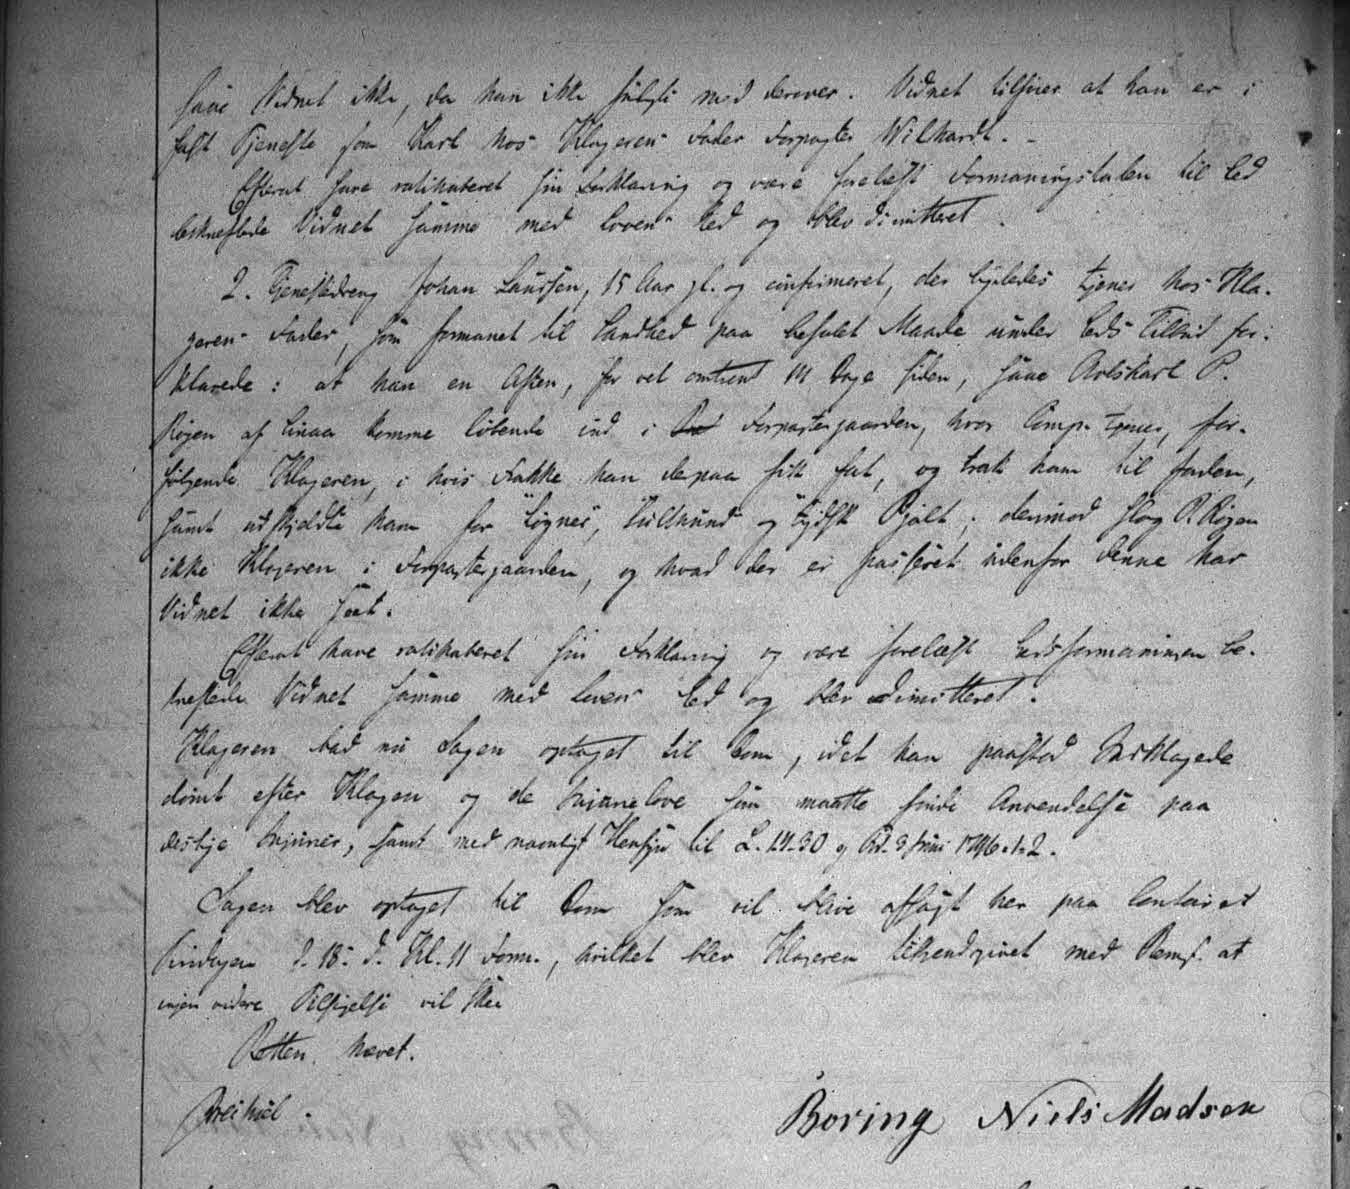 saae Vidnet ikke, da han ikke fulgte med derover. Vidnet tilføier at han er i
fast Tjeneste som Karl hos Klagerens Fader Forpagter Wilhardt. -
Efterat have ratihaberet sin Forklaring og være forelæst Formaningstalen til Ed
bekræftede Vidnet samme med Lovens Ed og blev dimitteret.
2. Tjenestedreng Johan Laursen, 15 Aar gl. og confirmeret, der ligeledes tjener hos Kla-
gerens Fader, som formanet til Sandhed paa befalet Maade under Eds Tilbud for-
klarede: at han en Aften, for vel omtrent 14 Dage siden, saae Avlskarl P.
Røgen af Linaa komme løbende ind i Forpagtergaarden, hvor Comp. tjener, for-
følgende Klageren, i hvis Frakke han derpaa fik fat, og trak ham til Jorden,
samt udskjeldte ham for "Løgner", Lulhund og "tydsk Pjalt"; derimod slog P. Røgen
ikke Klageren i Forpagtergaarden, og hvad der er passeret udenfor denne har
Vidnet ikke seet.
Efterat have ratihaberet sin Forklaring og være forelæst Eedsformaningen be-
kræftede Vidnet samme med Lovens Ed og blev dimitteret.
Klageren bad nu Sagen optaget til Dom, idet han paastod Indklagede
dømt efter Klagen og de Injurielove som maatte finde Anvendelse paa
deslige Injurier, samt med navnligt Hensyn til L. 1.4-30 og Pd. 3 Juni 1796. 1. 2.
Sagen blev optaget til Dom som vil blive afsagt her paa Contoiret
Tirsdagen d. 18. d. Kl. 11 Form., hvilket blev Klageren tilkendegivet med Bemf. at
ingen videre Tilsigelse vil skee
Retten hævet.
Boring Niels Madsen